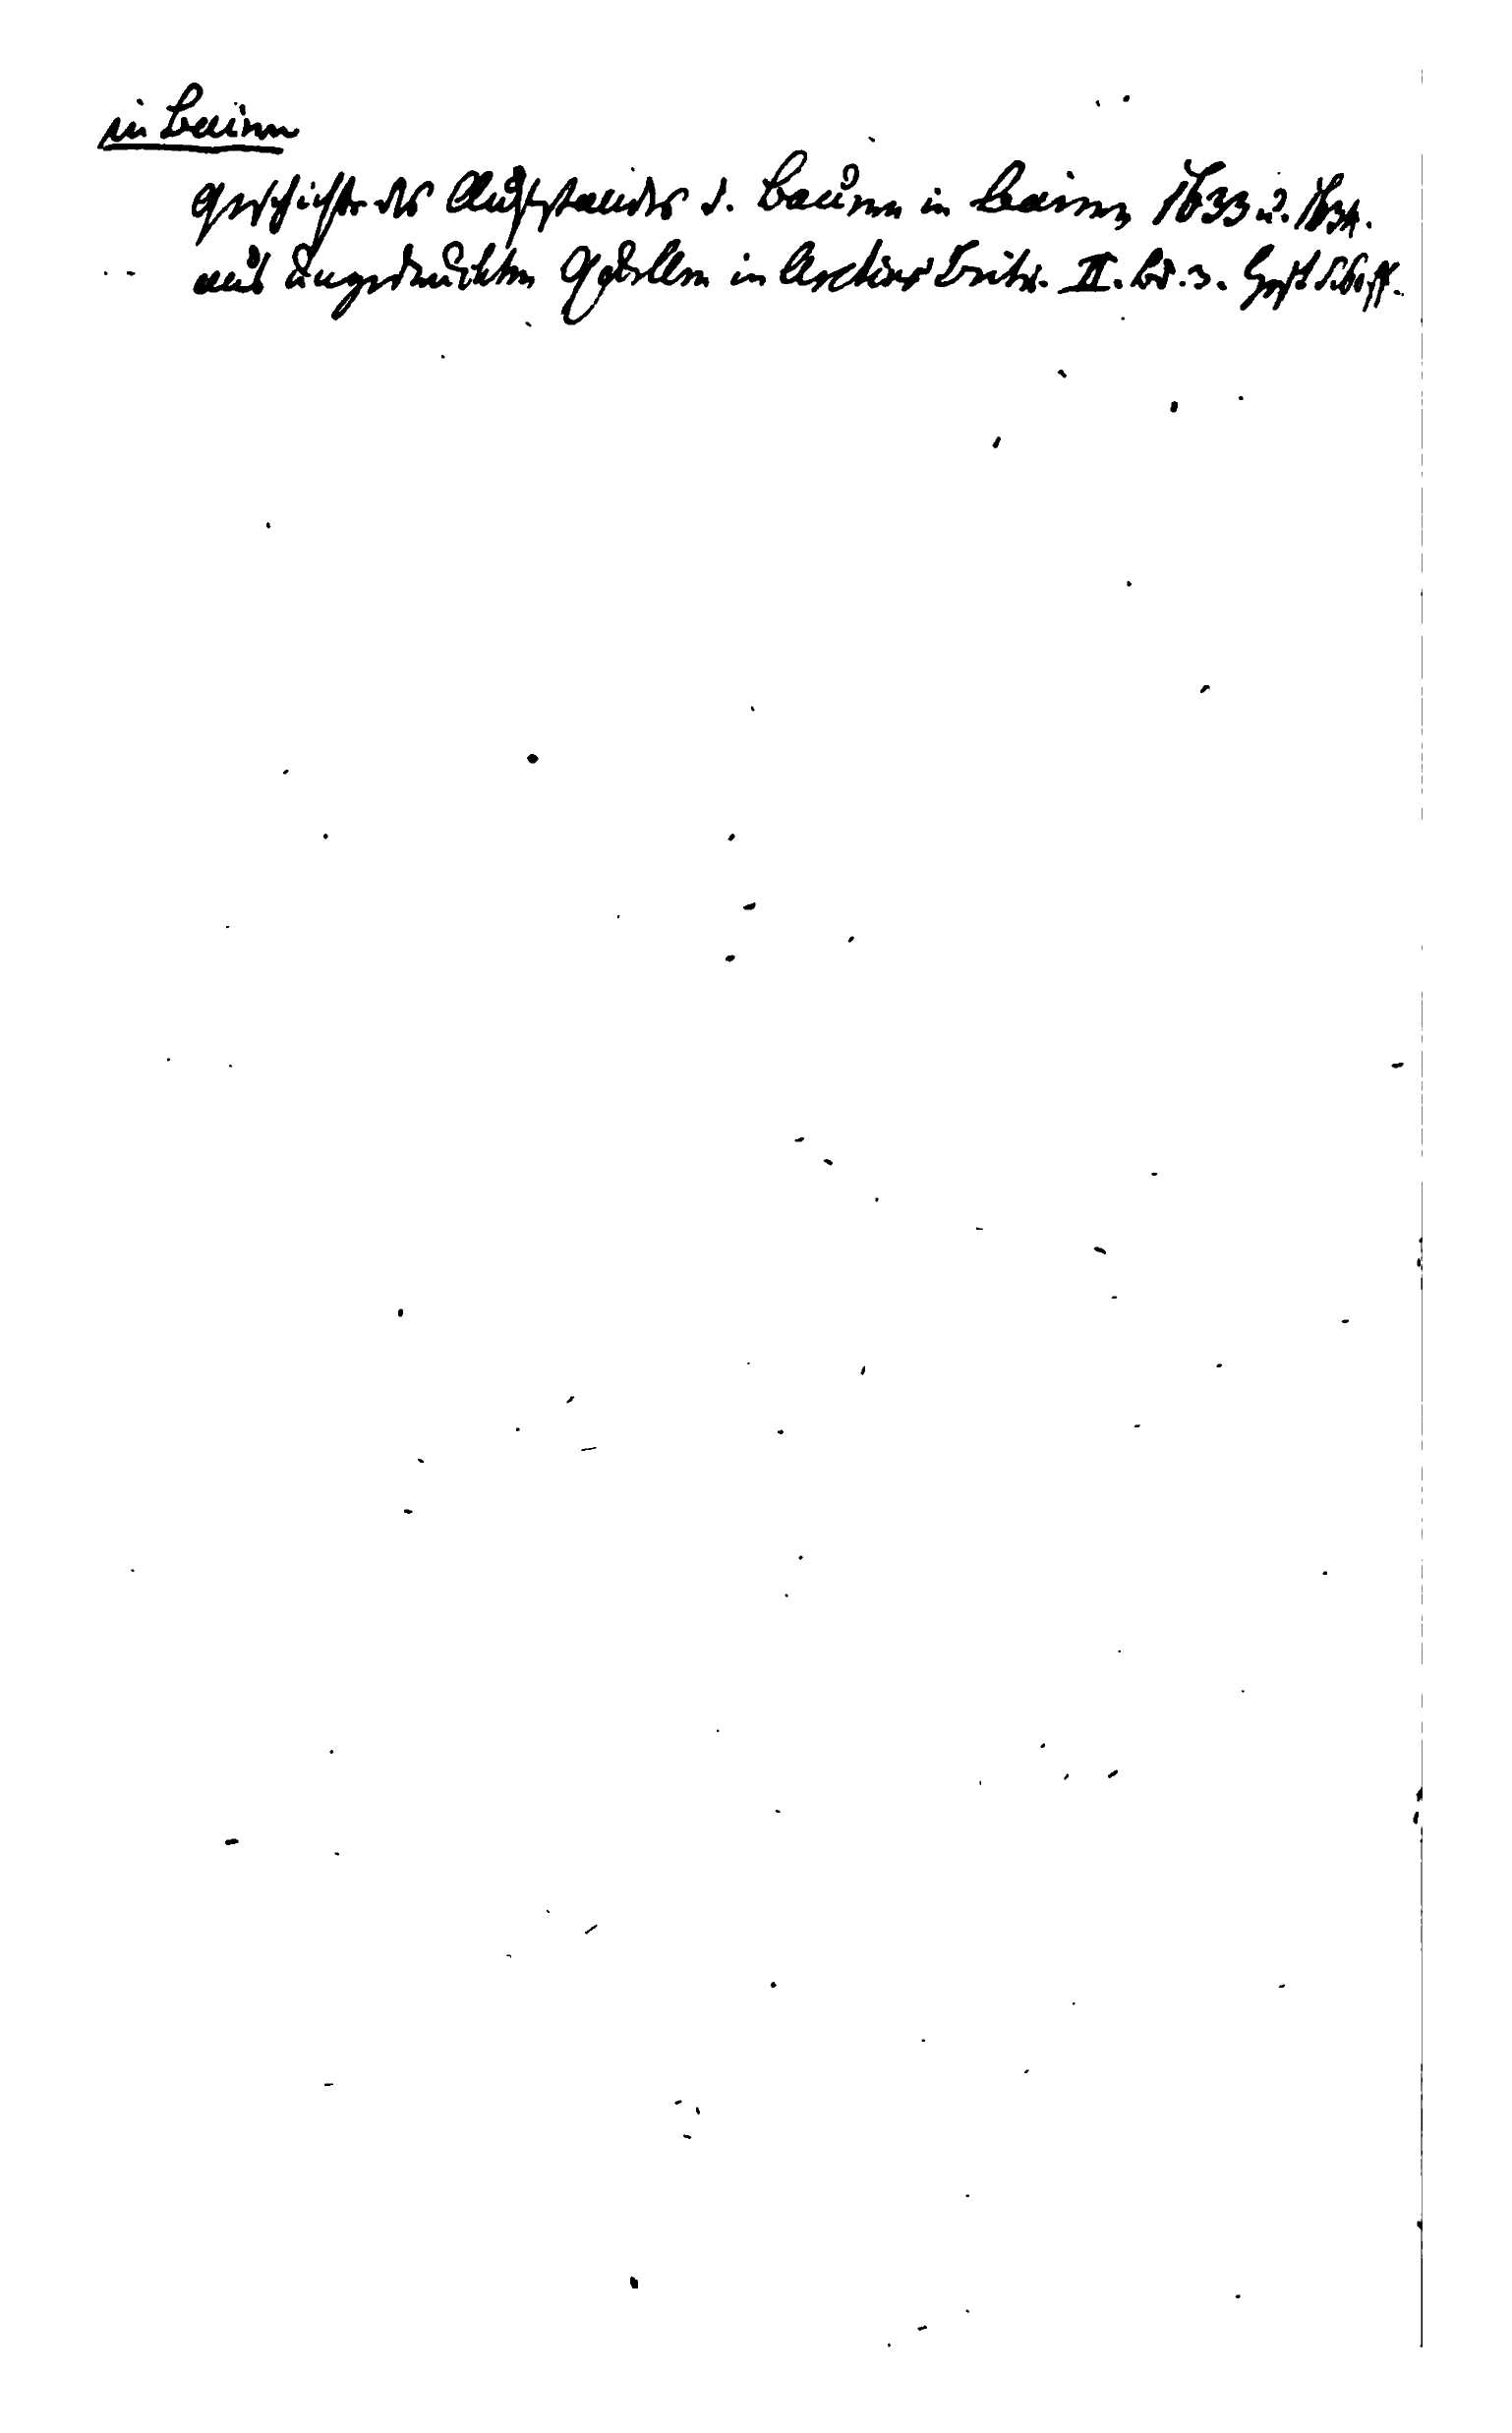 in Baiern
Geschichte des Aufstandes d. Bauern in Baiern 1633 u. 1634.
aus ungedruckten Quellen in Archiv Beitr. II. Bd. 3. Heft